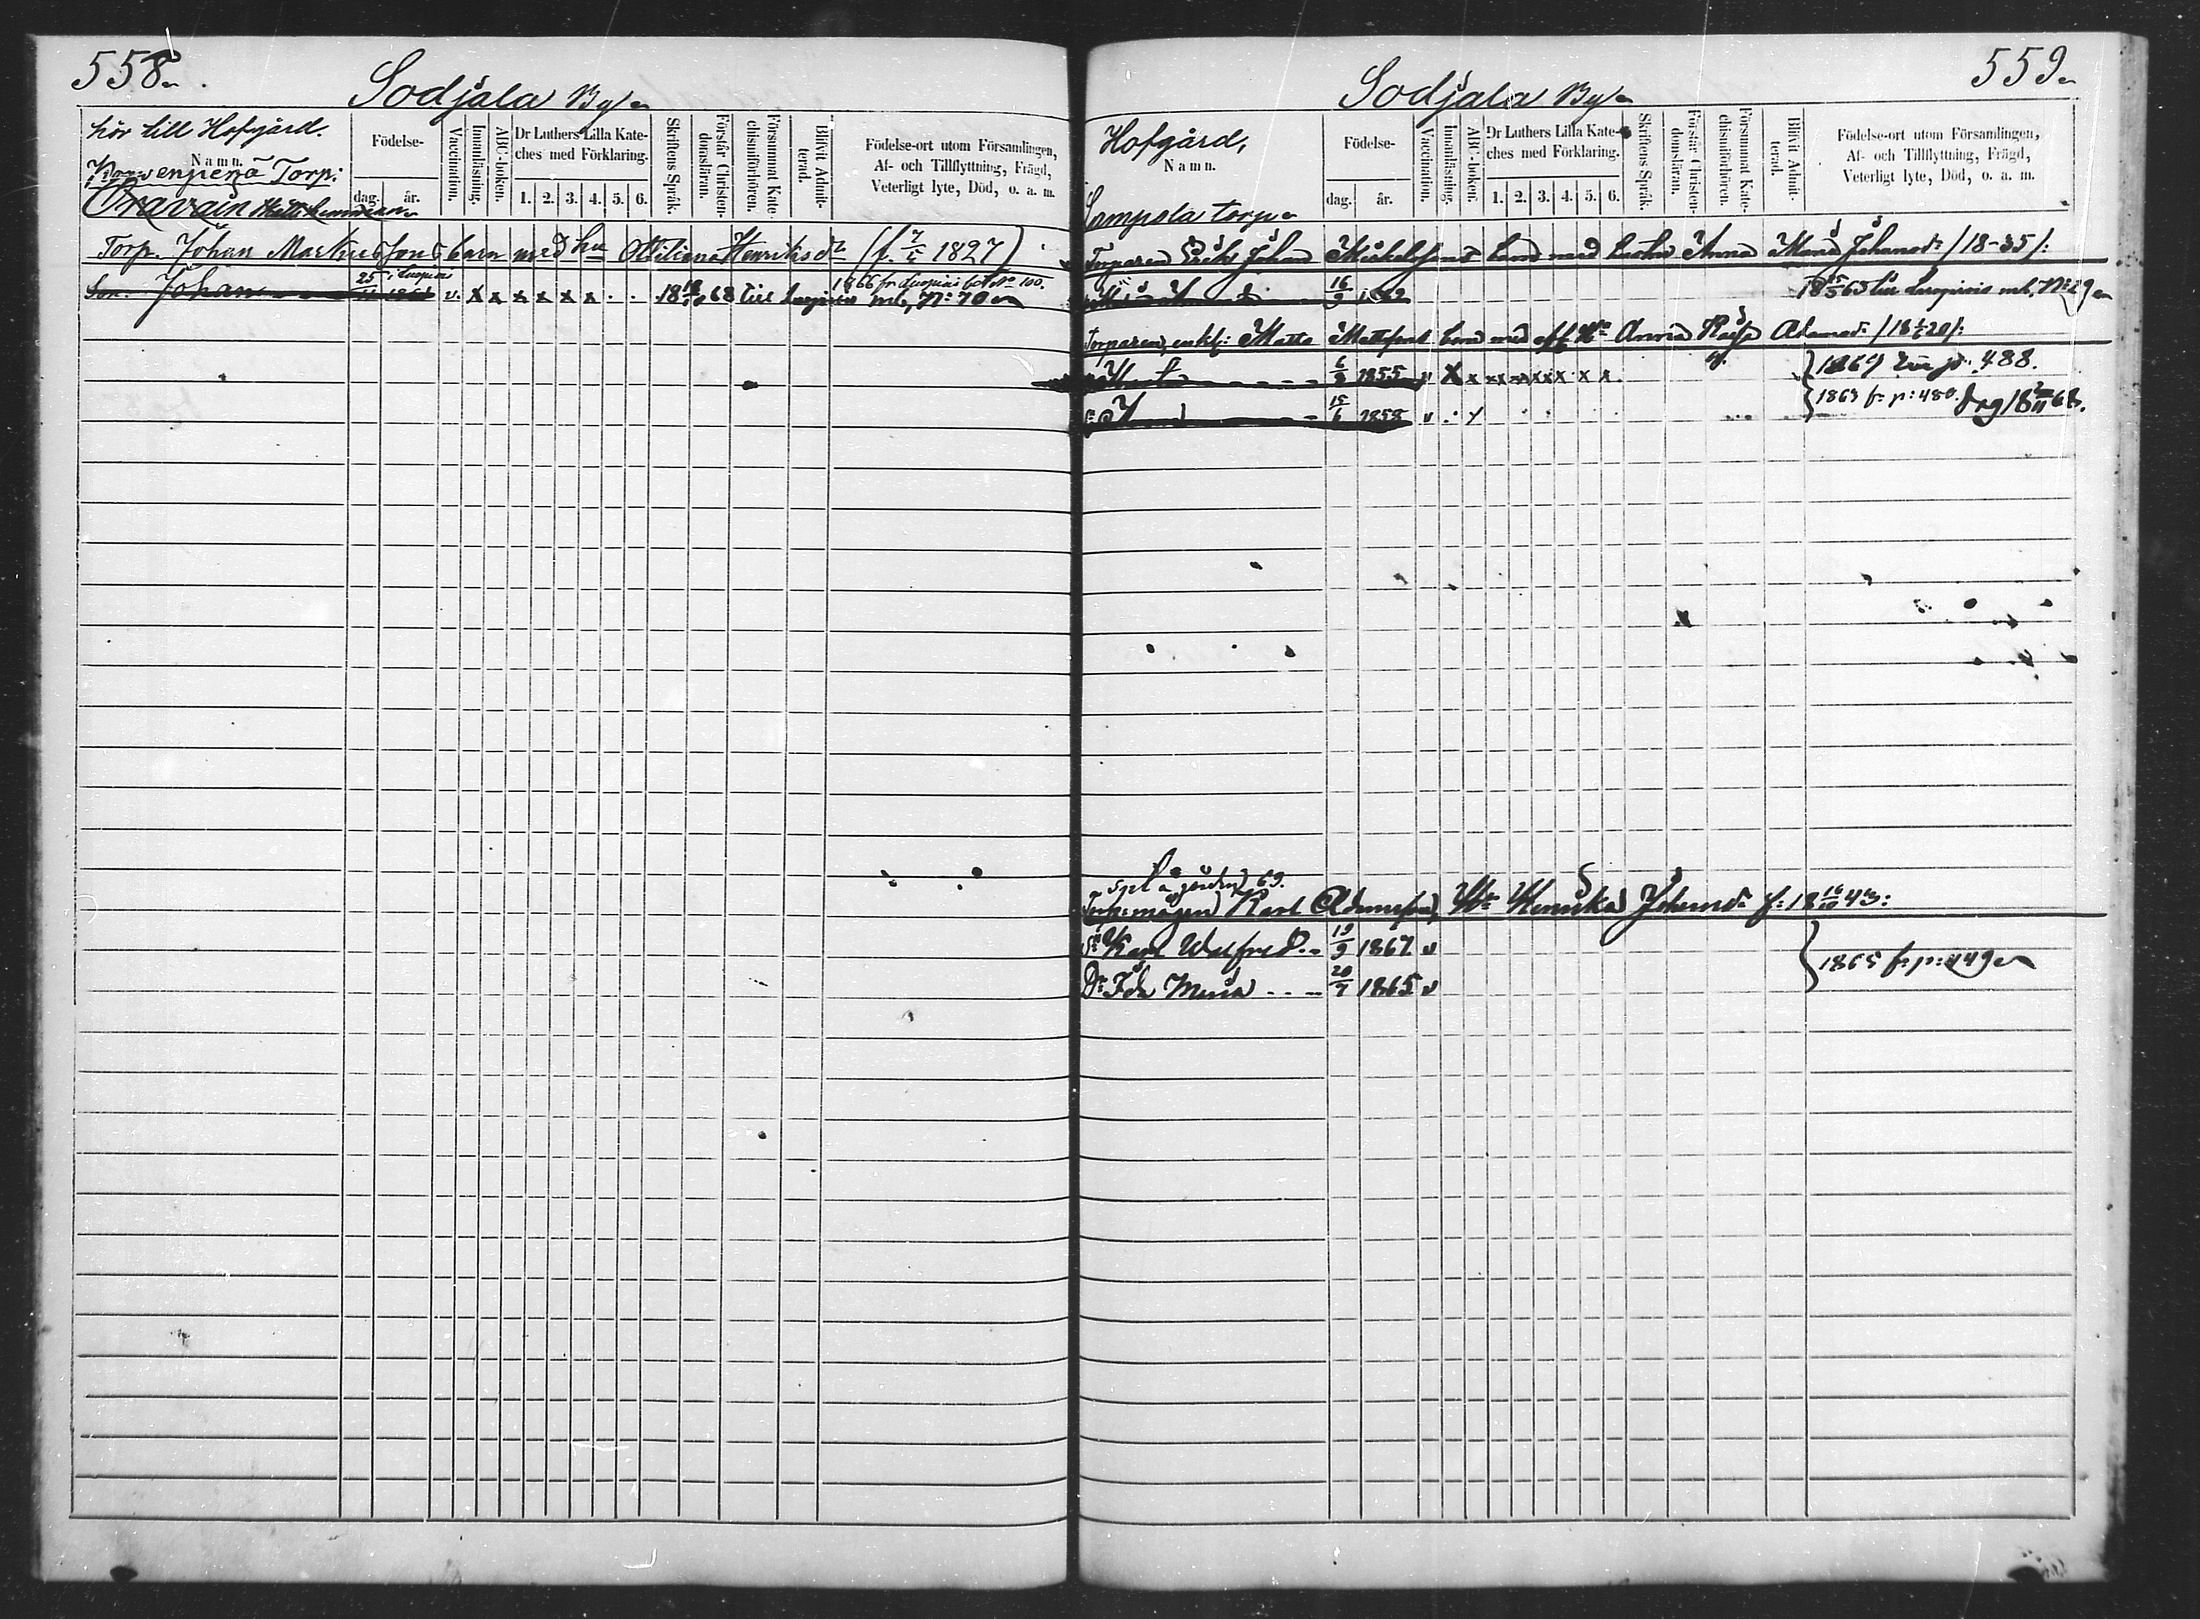 558.
Sodjala By
hör till Hofgård.
Namn.
Torp:
Oravain
Födelse-
dag. år.
Vaccination.
Innanläsning.
ABC-boken.
Dr Luthers Lilla Kate-
ches med Förklaring.
1. 2. 3. 4. 5. 6.
Skriftens Språk.
Förstår Christen-
domsläran.
Försummat Kate-
chismiförhören.
Blifvit Admit-
terad.
Födelse-ort utom Församlingen,
Af- och Tillflyttning, Frägd,
Veterligt lyte, Död, o. a. m.
Torp. Johan Markussons barn med hu Ottiliana Henriksdr (f. 7/5 1827)
1866 fr Luopiois bet No 100.
Son. Johan 25 v. x x x x x x . . 18 68 till Luopiois mb, No 70
559
Sodjala By
Hofgård,
Namn.
Sampola torp
Födelse-
dag. år.
Vaccination.
Innanläsning.
ABC-boken.
Dr Luthers Lilla Kate-
ches med Förklaring.
1. 2. 3. 4. 5. 6.
Skriftens Språk.
Förstår Christen-
domsläran.
Försummat Kate-
chismiförhören.
Blifvit Admit-
terad.
Födelse-ort utom Församlingen,
Af- och Tillflyttning, Frägd,
Veterligt lyte, Död, o. a. m.
Torparen Erik Johan Mickelssons barn med hustru Anna Maria Johansdr /18-35/:
16/9 18 63 till Luopiois mb, No 29
Torparen, enkl: Matts Mattssons barn med afl Hu Anna Kaisa Adamsdr /18 20/:
6/8 1855 v x x x x x x x x 1869 till p. 488.
15/6 1858 v 1863 fr p: 480.
gården 69.
Torpemågen Karl Adamsson, Hu Henrika Johansdr f: 18 16/10 43:
Sn Karl Walfred 19/9 1867 v
1865 fr p: 449
Dr Ida Maria 20/7 1865 v